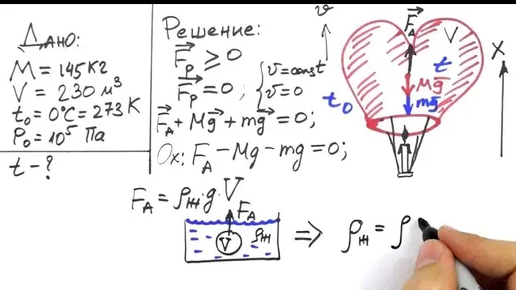 Дано:
M = 145 кг
V = 230 м³
t₀ = 0°C = 273 K
P₀ = 10⁵ Па
t - ?
Решение:
F⃗р ⩾ 0
F⃗р = 0; { v⃗ = const
v⃗ = 0
F⃗A + Mg⃗ + mg⃗ = 0;
Ox: FA - Mg - mg = 0;
FA = ρж·g·V
FA
V
ρж
⇒ ρж = ρ
v⃗
F⃗A
V
X
t
Mg⃗
mg⃗
t₀